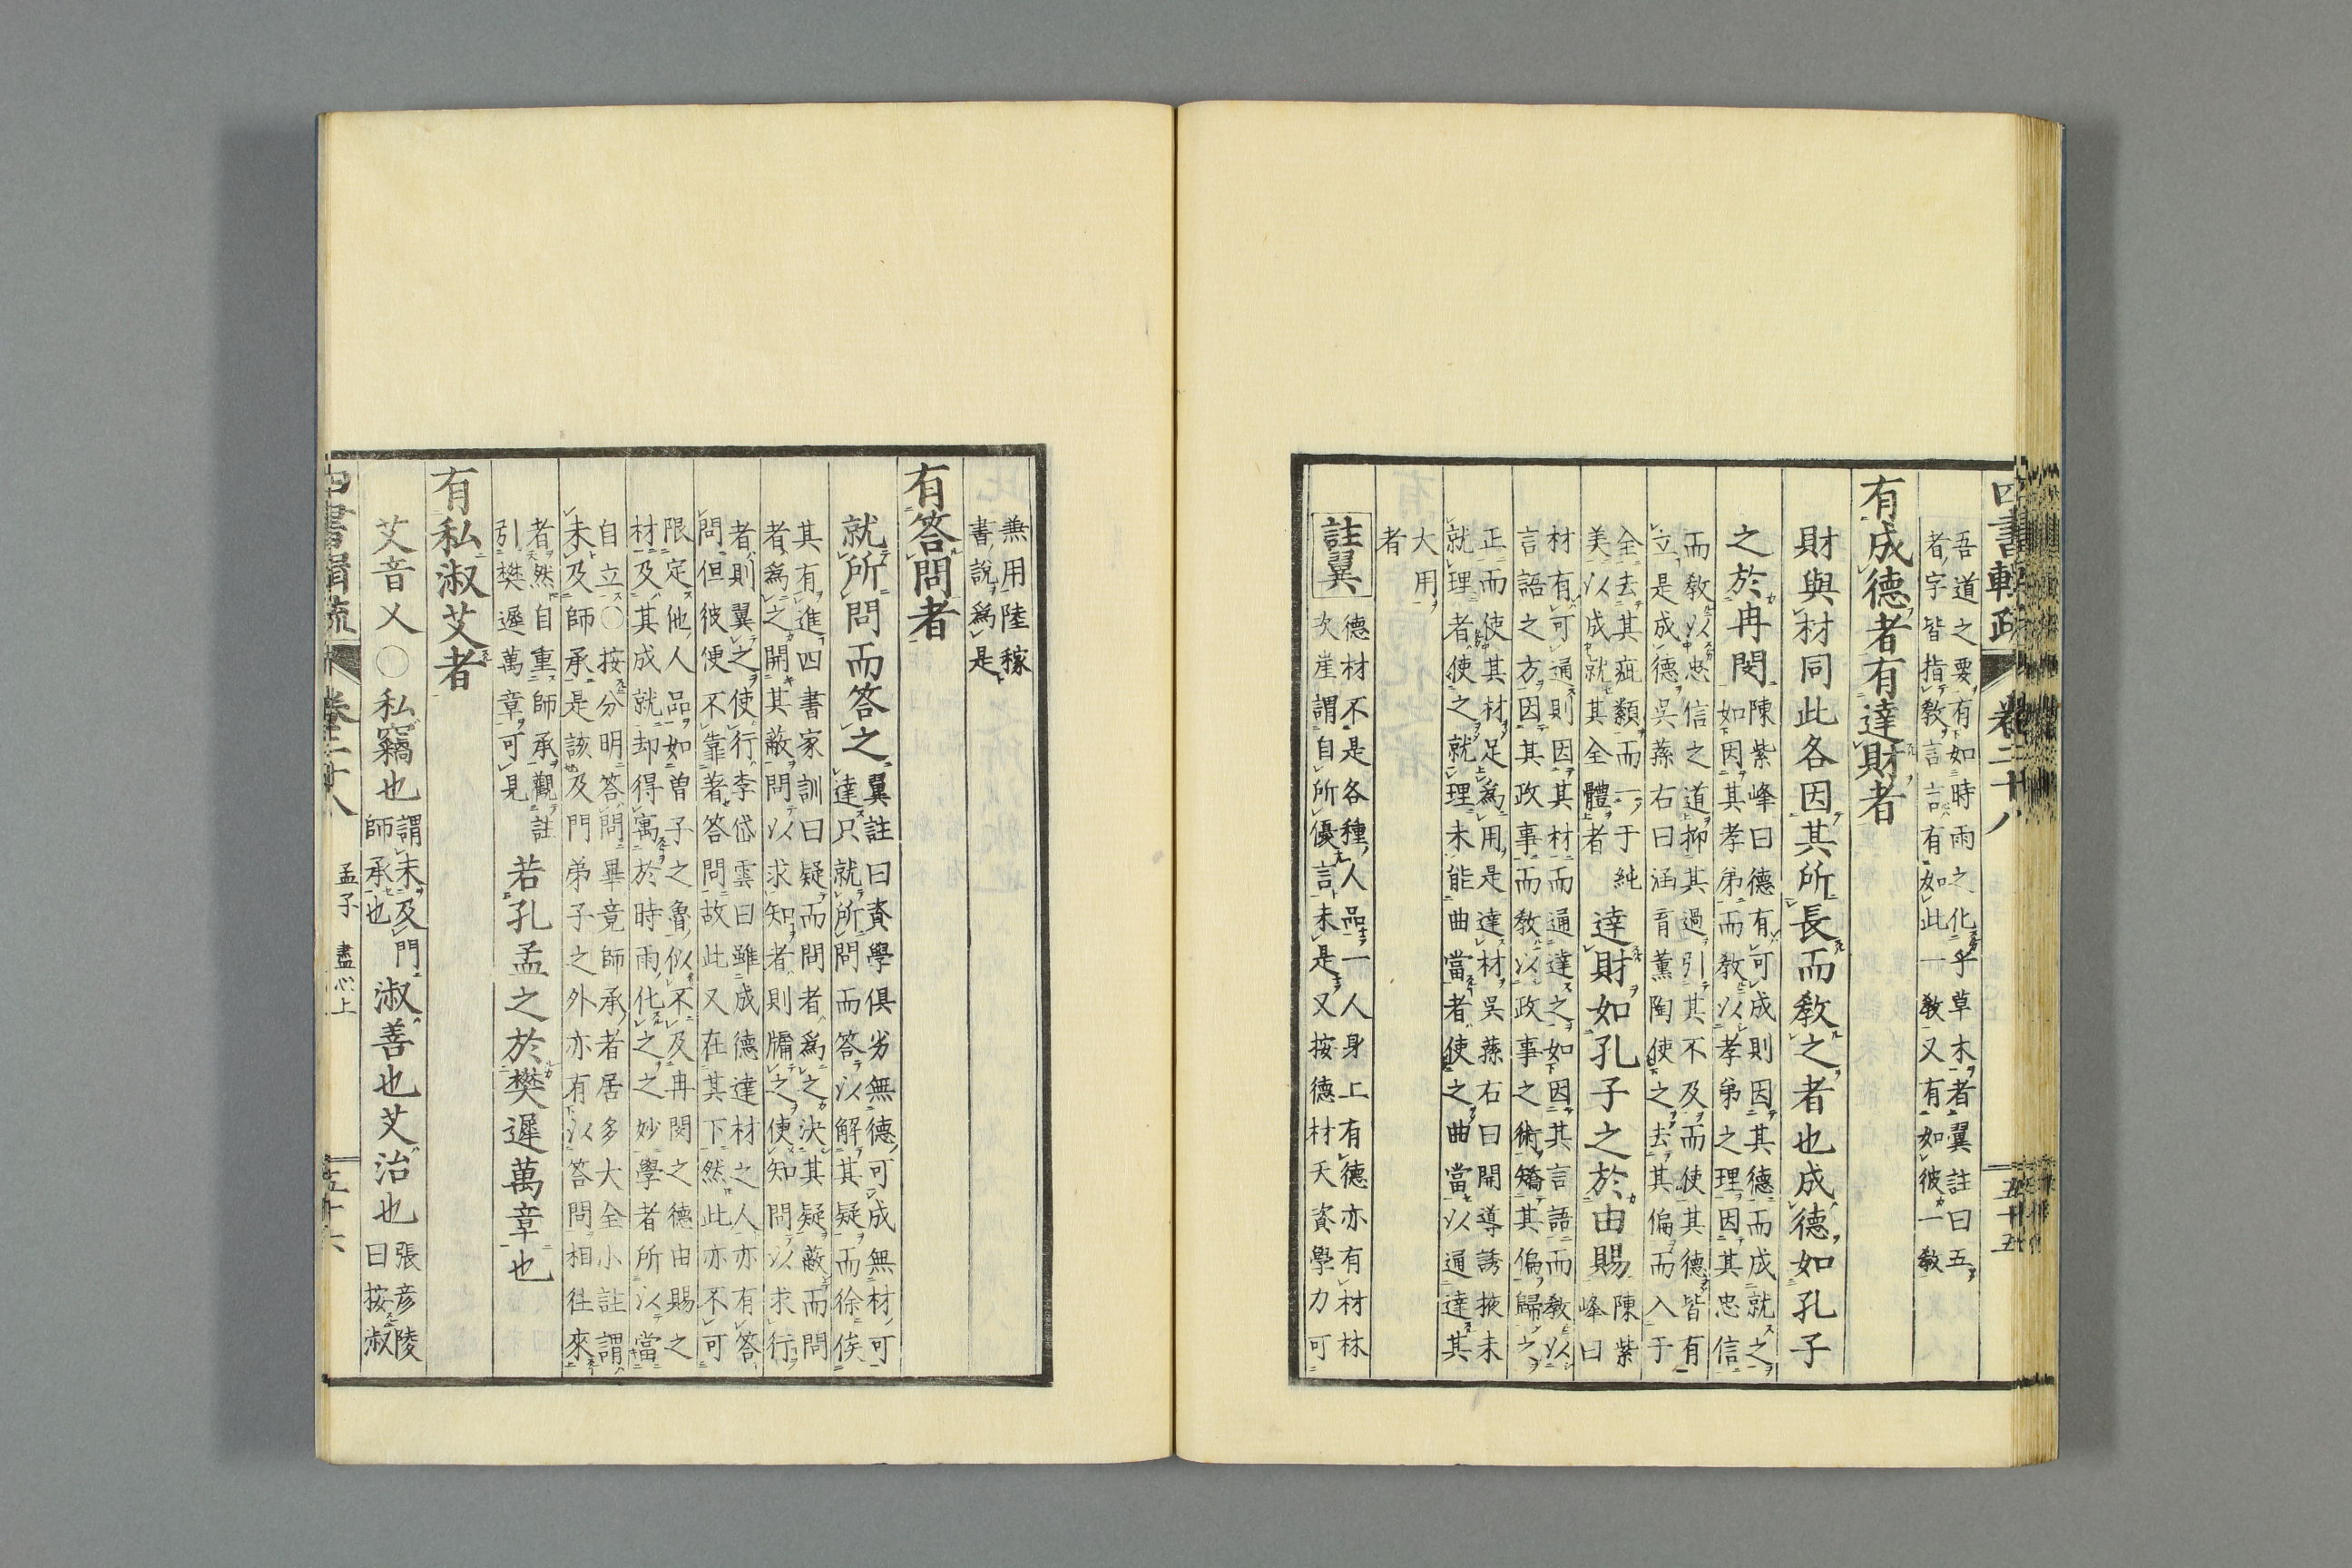 四書輯疏 卷二十八 五十五
吾道之要有如時雨之化乎草木者翼註曰五
者字皆指敎言言有如此一敎又有如彼一敎
有成德者有達財者
財與材同此各因其所長而敎之者也成德如孔子
之於冉閔
陳紫峰曰德有可成則因其德而成就之
如因其孝弟而敎以孝弟之理因其忠信
而敎以忠信之道抑其過引其不及而使其德皆有
立是成德吳蓀右曰涵育薰陶使之去其偏而入于
全去其疵纇而一于純
美以成就其全體者
達財如孔子之於由賜
陳紫
峰曰
材有可通則因其材而通達之如因其言語而敎以
言語之方因其政事而敎以政事之術矯其偏歸之
正而使其材足爲用是達材吳蓀右曰開導誘掖未
就理者使之就理未能曲當者使之曲當以通達其
大用
者
註翼
德材不是各種人品一人身上有德亦有材林
次崖謂自所優言未是又按德材天資學力可
兼用陸稼
書說爲是
有答問者
就所問而答之
翼註曰資學俱劣無德可成無材可
達只就所問而答以解其疑而徐俟
其有進四書家訓曰疑而問者爲之決其疑蔽而問
者爲之開其蔽問以求知者則牖之使知問以求行
者則翼之使行李岱雲曰雖成德達材之人亦有答
問但彼便不靠著答問故此又在其下然此亦不可
限定他人品如曾子之魯似不及冉閔之德由賜之
材及其成就却得寓於時雨化之之妙學者所以當
自立〇按分明答問畢竟師承者居多大全小註謂
未及師承是該及門弟子之外亦有以答問相往來
者然自重師承觀註
引樊遲萬章可見
若孔孟之於樊遲萬章也
有私淑艾者
艾音乂〇私竊也
謂未及門
師承也
淑善也艾治也
張彦陵
曰按淑
四書輯疏 卷二十八 孟子 盡心上 五十六